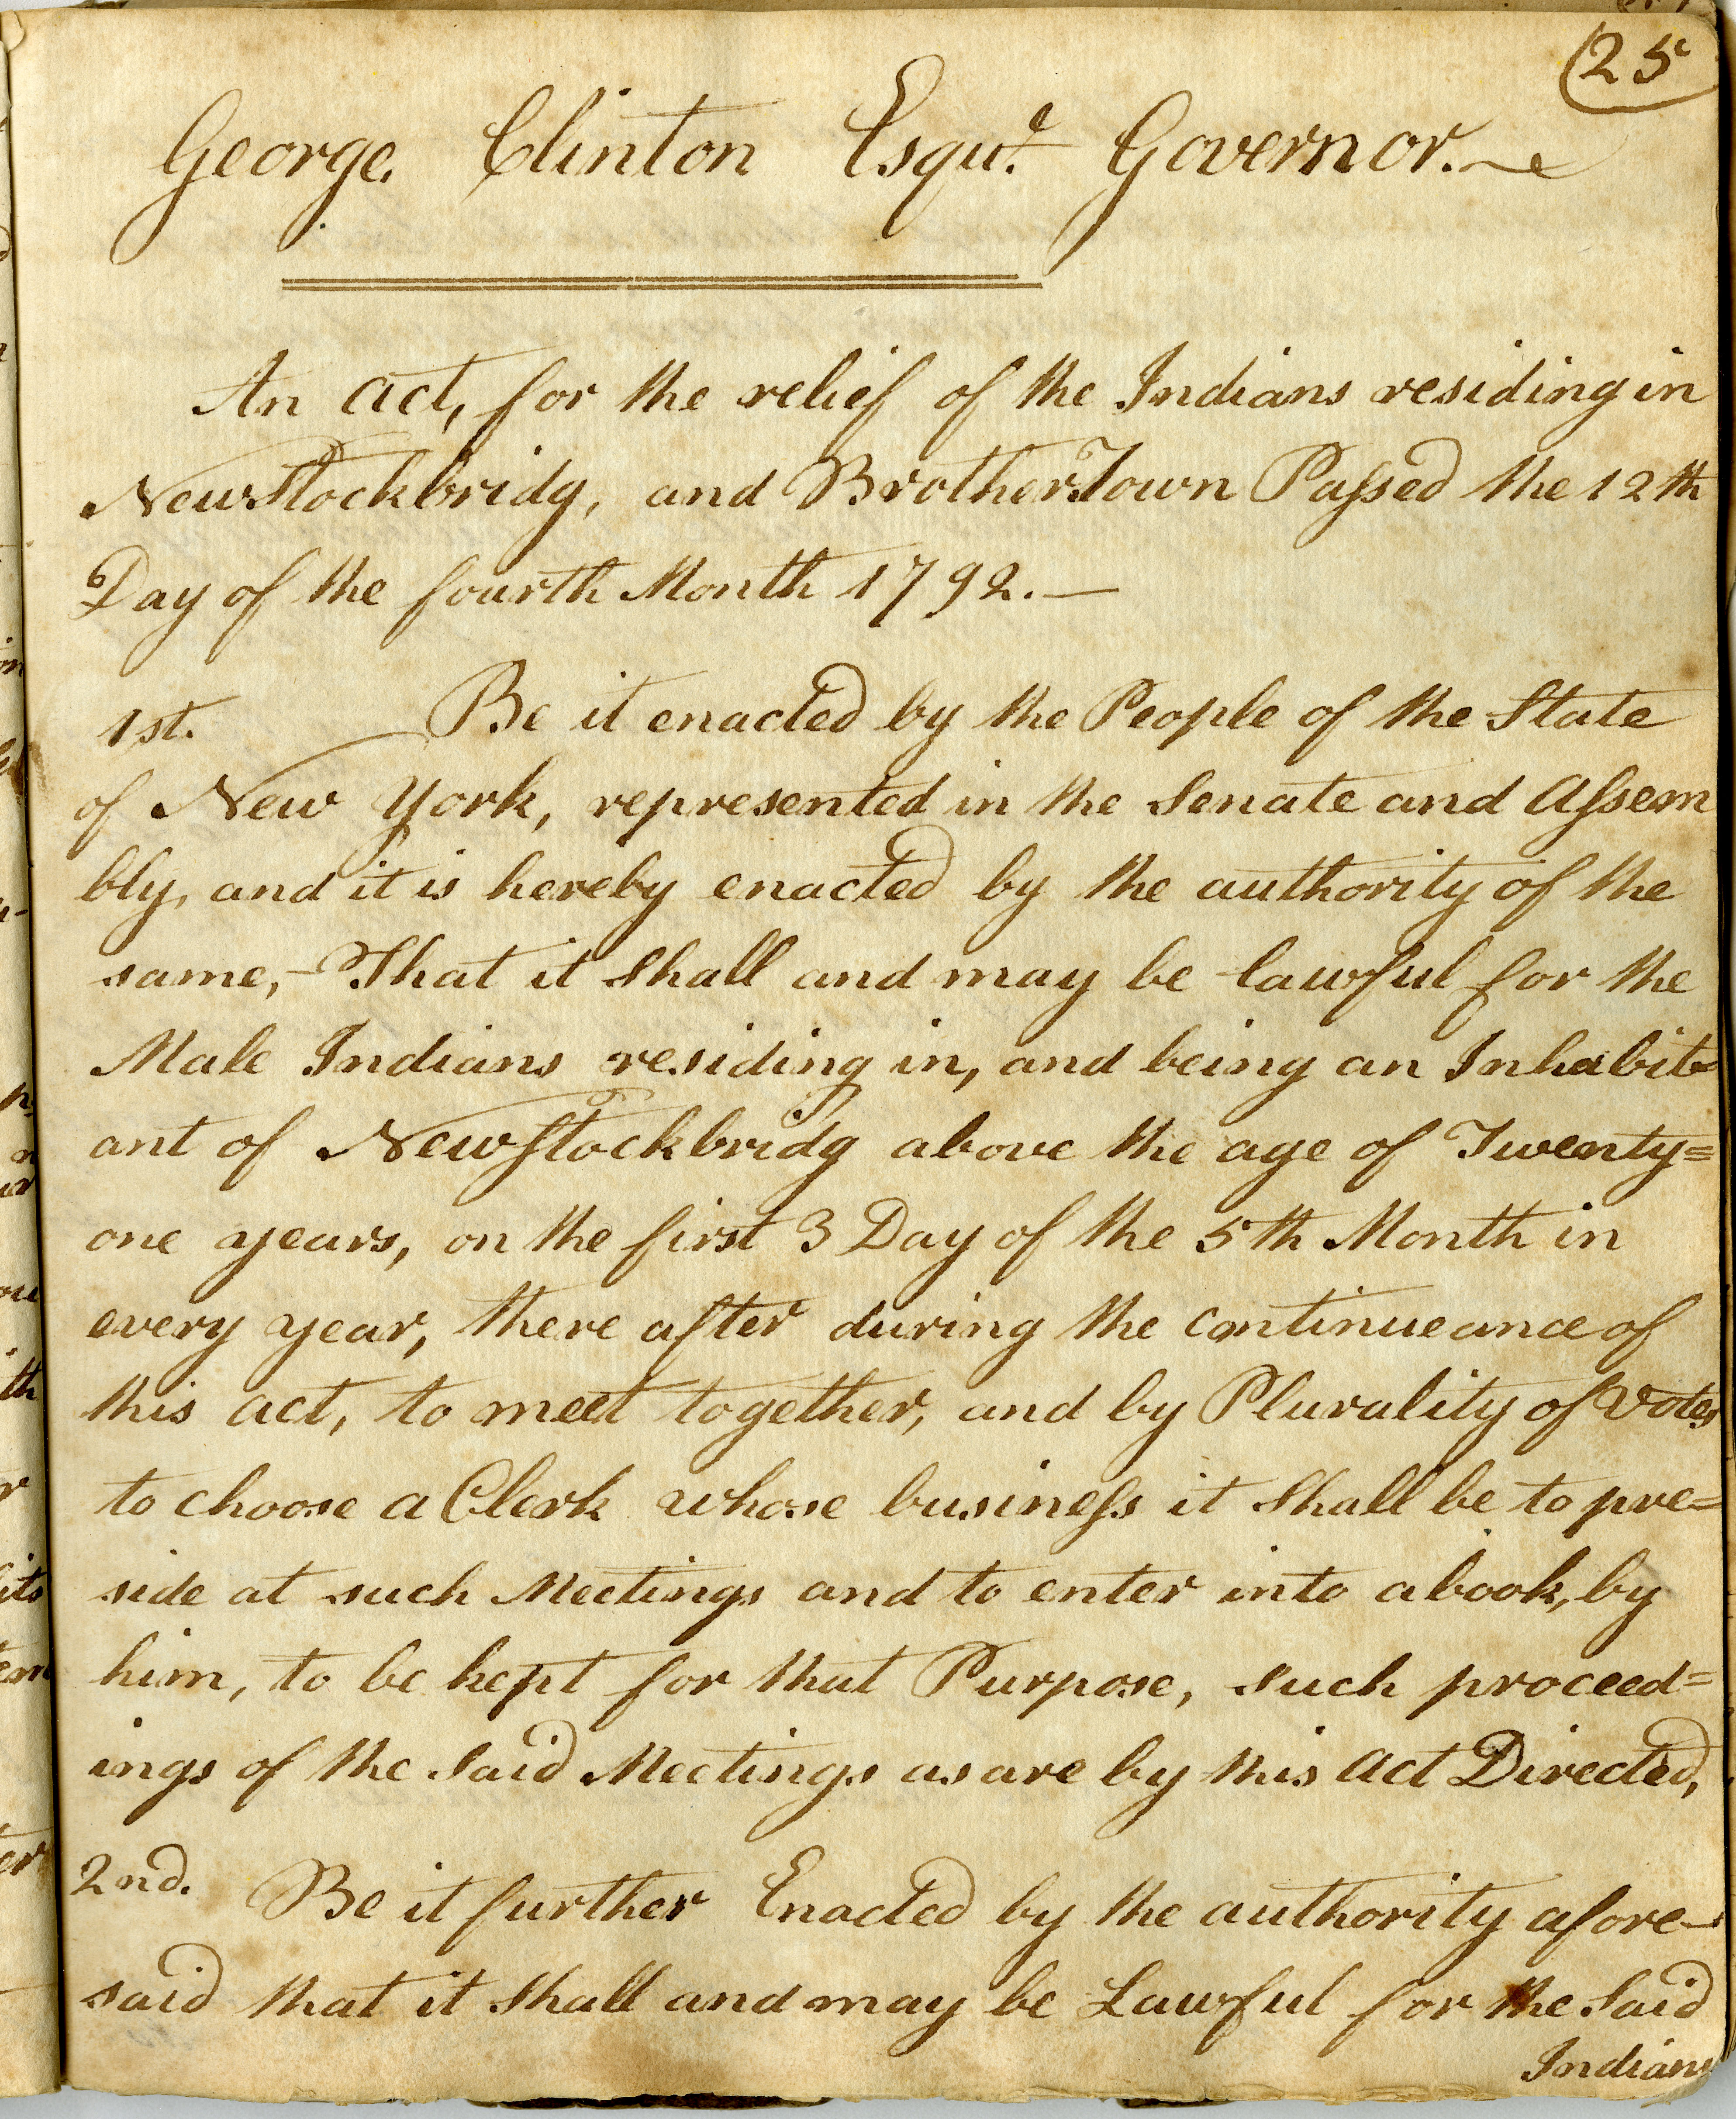 25
George Clinton Esqur. Governor.
An act, for the relief of the Indians residing in
New Stockbridg, and BrotherTown Passed the 12th
Day of the fourth Month 1792.—
1st. Be it enacted by the People of the State
of New York, represented in the Senate and Assem
bly, and it is hereby enacted by the authority of the
same,- That it shall and may be lawful for the
Male Indians residing in, and being an Inhabit=
ant of New Stockbridg above the age of Twenty=
one years, on the first 3 Day of the 5th Month in
every year, there after during the continueance of
this act, to meet together, and by Plurality of Votes
to choose a Clerk whose business it shall be to pre=
side at such Meetings and to enter into a book, by
him, to be kept for that Purpose, such proceed=
ings of the said Meetings as are by this act Directed,
2nd. Be it further Enacted by the authority afore-
said that it shall and may be Lawful for the Said
Indians